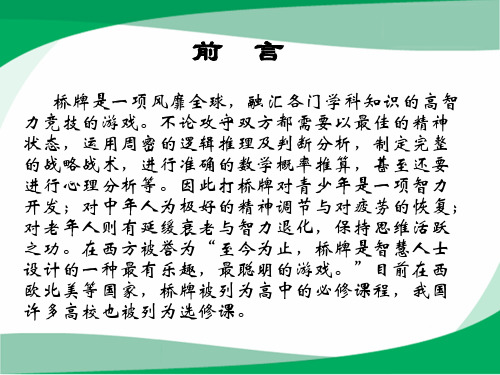 前 言
桥牌是一项风靡全球，融汇各门学科知识的高智
力竞技的游戏。不论攻守双方都需要以最佳的精神
状态，运用周密的逻辑推理及判断分析，制定完整
的战略战术，进行准确的数学概率推算，甚至还要
进行心理分析等。因此打桥牌对青少年是一项智力
开发；对中年人为极好的精神调节与对疲劳的恢复；
对老年人则有延缓衰老与智力退化，保持思维活跃
之功。在西方被誉为“至今为止，桥牌是智慧人士
设计的一种最有乐趣，最聪明的游戏。”目前在西
欧北美等国家，桥牌被列为高中的必修课程，我国
许多高校也被列为选修课。